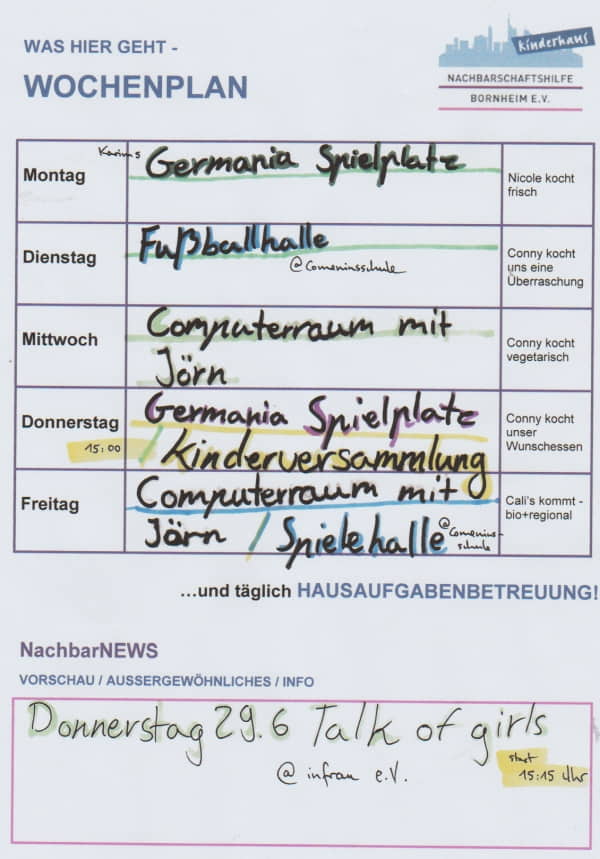 WAS HIER GEHT -
WOCHENPLAN
Kinderhaus
NACHBARSCHAFTSHILFE
BORNHEIM E.V.
Montag
Germania Spielplatz
Nicole kocht
frisch
Dienstag
Fußballhalle
@Comeniusschule
Conny kocht
uns eine
Überraschung
Mittwoch
Computerraum mit
Jörn
Conny kocht
vegetarisch
Donnerstag
15:00
Germania Spielplatz
/ Kinderversammlung
Conny kocht
unser
Wunschessen
Freitag
Computerraum mit
Jörn / Spielehalle
@Comenius-
schule
Cali's kommt -
bio+regional
...und täglich HAUSAUFGABENBETREUUNG!
NachbarNEWS
VORSCHAU / AUSSERGEWÖHNLICHES / INFO
Donnerstag 29.6 Talk of girls
@ infrau e.V.
start
15:15 Uhr